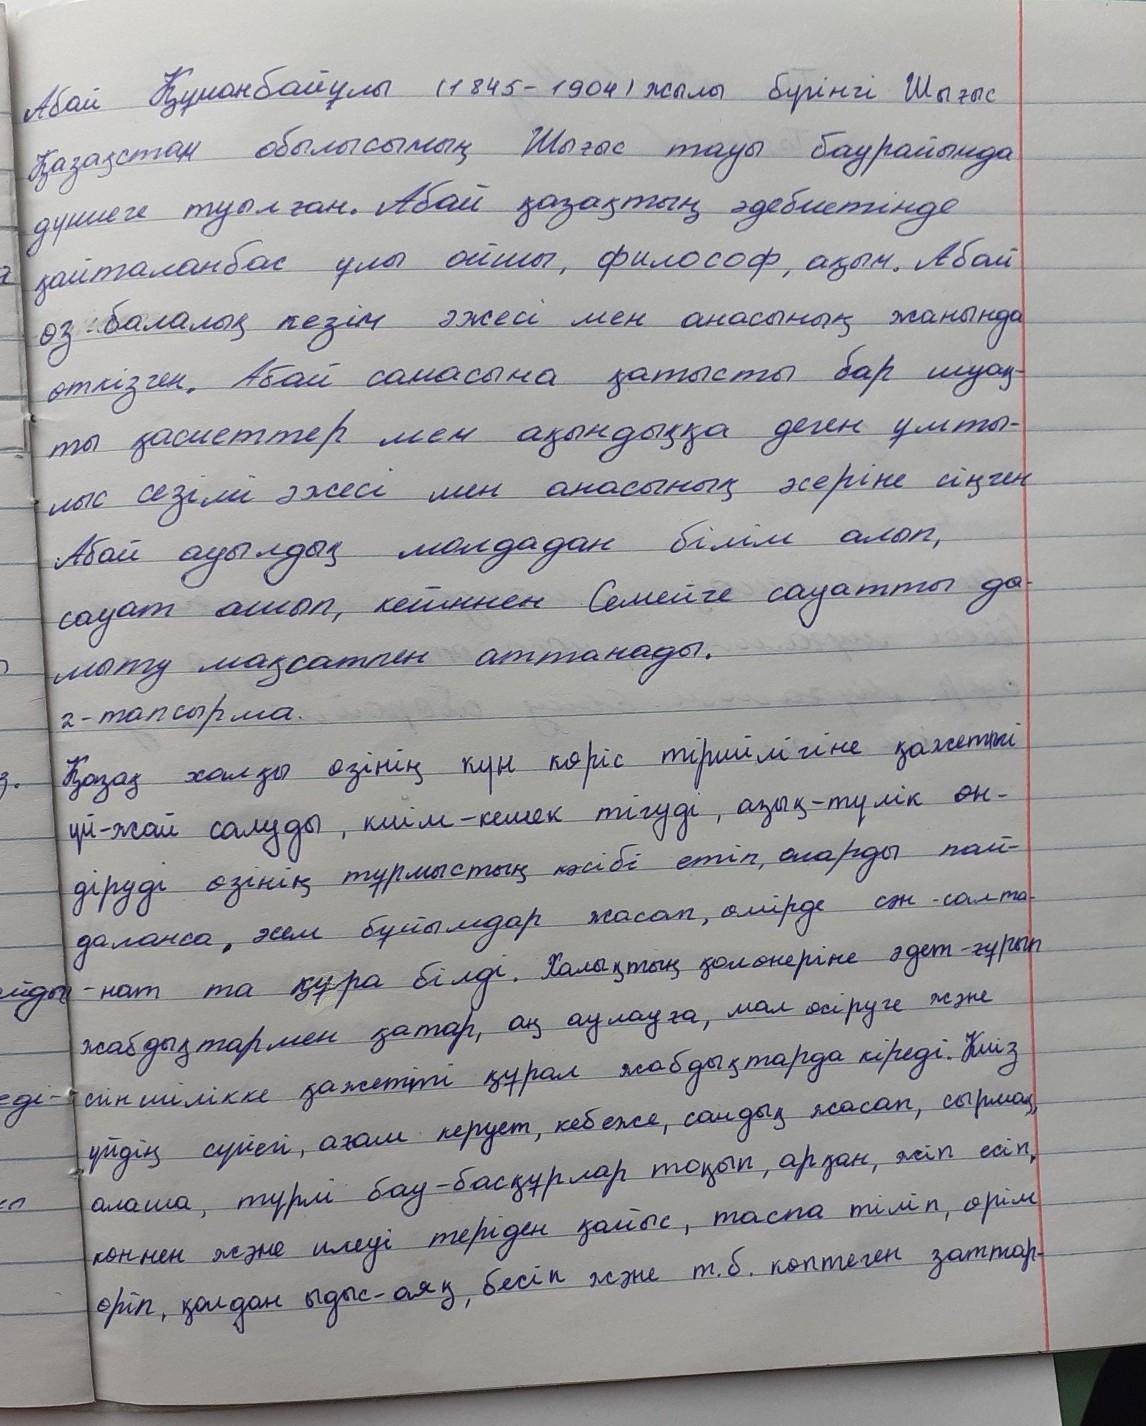 Абай Құнанбайұлы (1845-1904) жылы бүгінгі Шығыс
Қазақстан облысының Шығыс тауы баурайында
дүниеге туылған. Абай қазақтың әдебиетінде
қайталанбас ұлы ойшы, философ, ақын. Абай
өз балалық кезін әжесі мен анасының жанында
өткізген. Абай санасына қатысты бар шуақ-
ты қасиеттер мен ақындыққа деген ұмты-
лыс сезімі әжесі мен анасының әсеріне сіңген
Абай ауылдық молдадан білім алып,
сауат ашып, кейіннен Семейге сауатты да-
мыту мақсатпен аттанады.
2-тапсырма.
Қазақ халқы өзінің күн көріс тіршілігіне қажетті
үй-жай салуды, киім-кешек тігуді, азық-түлік өн-
діруді өзінің тұрмыстың кәсібі етіп, оларды пай-
даланса, әсем бұйымдар жасап, өмірде сән-салта-
-нат та құра білді. Халықтың қолөнеріне әдет-ғұрып
жабдықтармен қатар, аң аулауға, мал өсіруге және
егіншілікке қажетті құрал жабдықтарда кіреді. Киіз
үйдің сүйегі, ағаш керует, кебеже, сандық жасап, сырмақ,
алаша, түрлі бау-басқұрлар тоқып, арқан, жіп есіп,
көннен және илеуі теріден қайыс, таспа тіліп, өрім
өріп, қолдан ыдыс-аяқ, бесік және т.б. көптеген заттар-